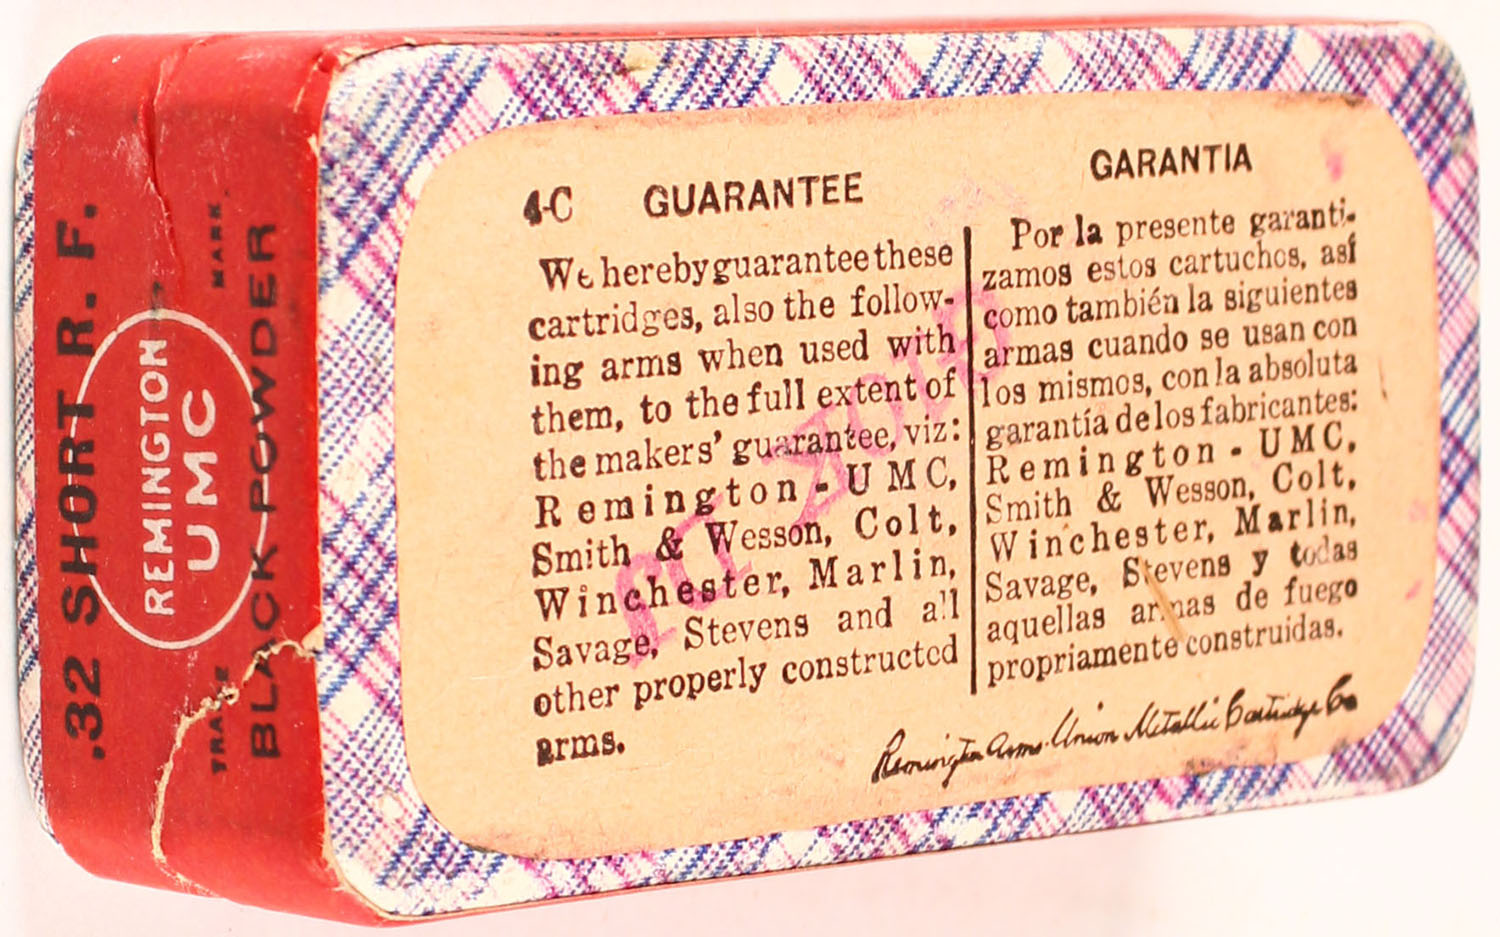 .32 SHORT R. F.
REMINGTON
UMC
TRADE MARK
BLACK POWDER
4-C GUARANTEE
We hereby guarantee these
cartridges, also the follow-
ing arms when used with
them, to the full extent of
the makers' guarantee, viz:
Remington-UMC,
Smith & Wesson, Colt,
Winchester, Marlin,
Savage, Stevens and all
other properly constructed
arms.
GARANTIA
Por la presente garanti-
zamos estos cartuchos, así
como también la siguientes
armas cuando se usan con
los mismos, con la absoluta
garantía de los fabricantes:
Remington-UMC,
Smith & Wesson, Colt,
Winchester, Marlin,
Savage, Stevens y todas
aquellas armas de fuego
propriamente construidas.
Remington Arms-Union Metallic Cartridge Co